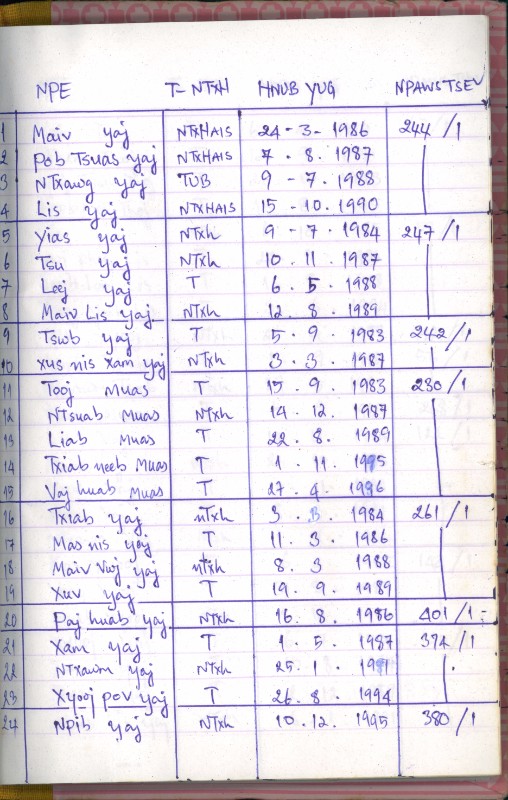 NPE T- NTXH HNUB YUG NPAWSTSEV
1 Maiv yaj NTXHAIS 24 - 3 - 1986 244 / 1
2 pob Tsuas yaj NTXHAIS 7 . 8 . 1987
3 NTxawg yaj TUB 9 - 7 . 1988
4 Lis yaj NTXHAIS 15 - 10 . 1990
5 Yias yaj NTxh 9 - 7 . 1984 247 / 1
6 Tsu yaj NTxh 10 . 11 . 1987
7 Leej yaj T 6 . 5 . 1988
8 Maiv Lis yaj NTxh 12 . 8 . 1989
9 Tswb yaj T 5 . 9 . 1983 242 / 1
10 xus nis xam yaj NTxh 3 . 3 . 1987
11 Tooj muas T 15 . 9 . 1983 230 / 1
12 NTsuab muas NTxh 14 . 12 . 1987
13 Liab muas T 22 . 8 . 1989
14 Txiab neeb muas T 1 . 11 . 1995
15 Vaj huab muas T 27 . 4 . 1996
16 Txiab yaj nTxh 3 . 3 . 1984 261 / 1
17 Mas nis yaj T 11 . 3 . 1986
18 Maiv Vwj yaj ntxh 8 . 3 1988
19 Xuv yaj T 19 . 9 . 1989
20 Paj huab yaj NTxh 16 . 8 . 1986 401 / 1
21 Xam yaj T 1 . 5 . 1987 374 / 1
22 NTxawm yaj NTxh 25 . 1 . 1991
23 Xyooj pov yaj T 26 . 8 . 1994
24 Npib yaj NTxh 10 . 12 . 1995 380 / 1